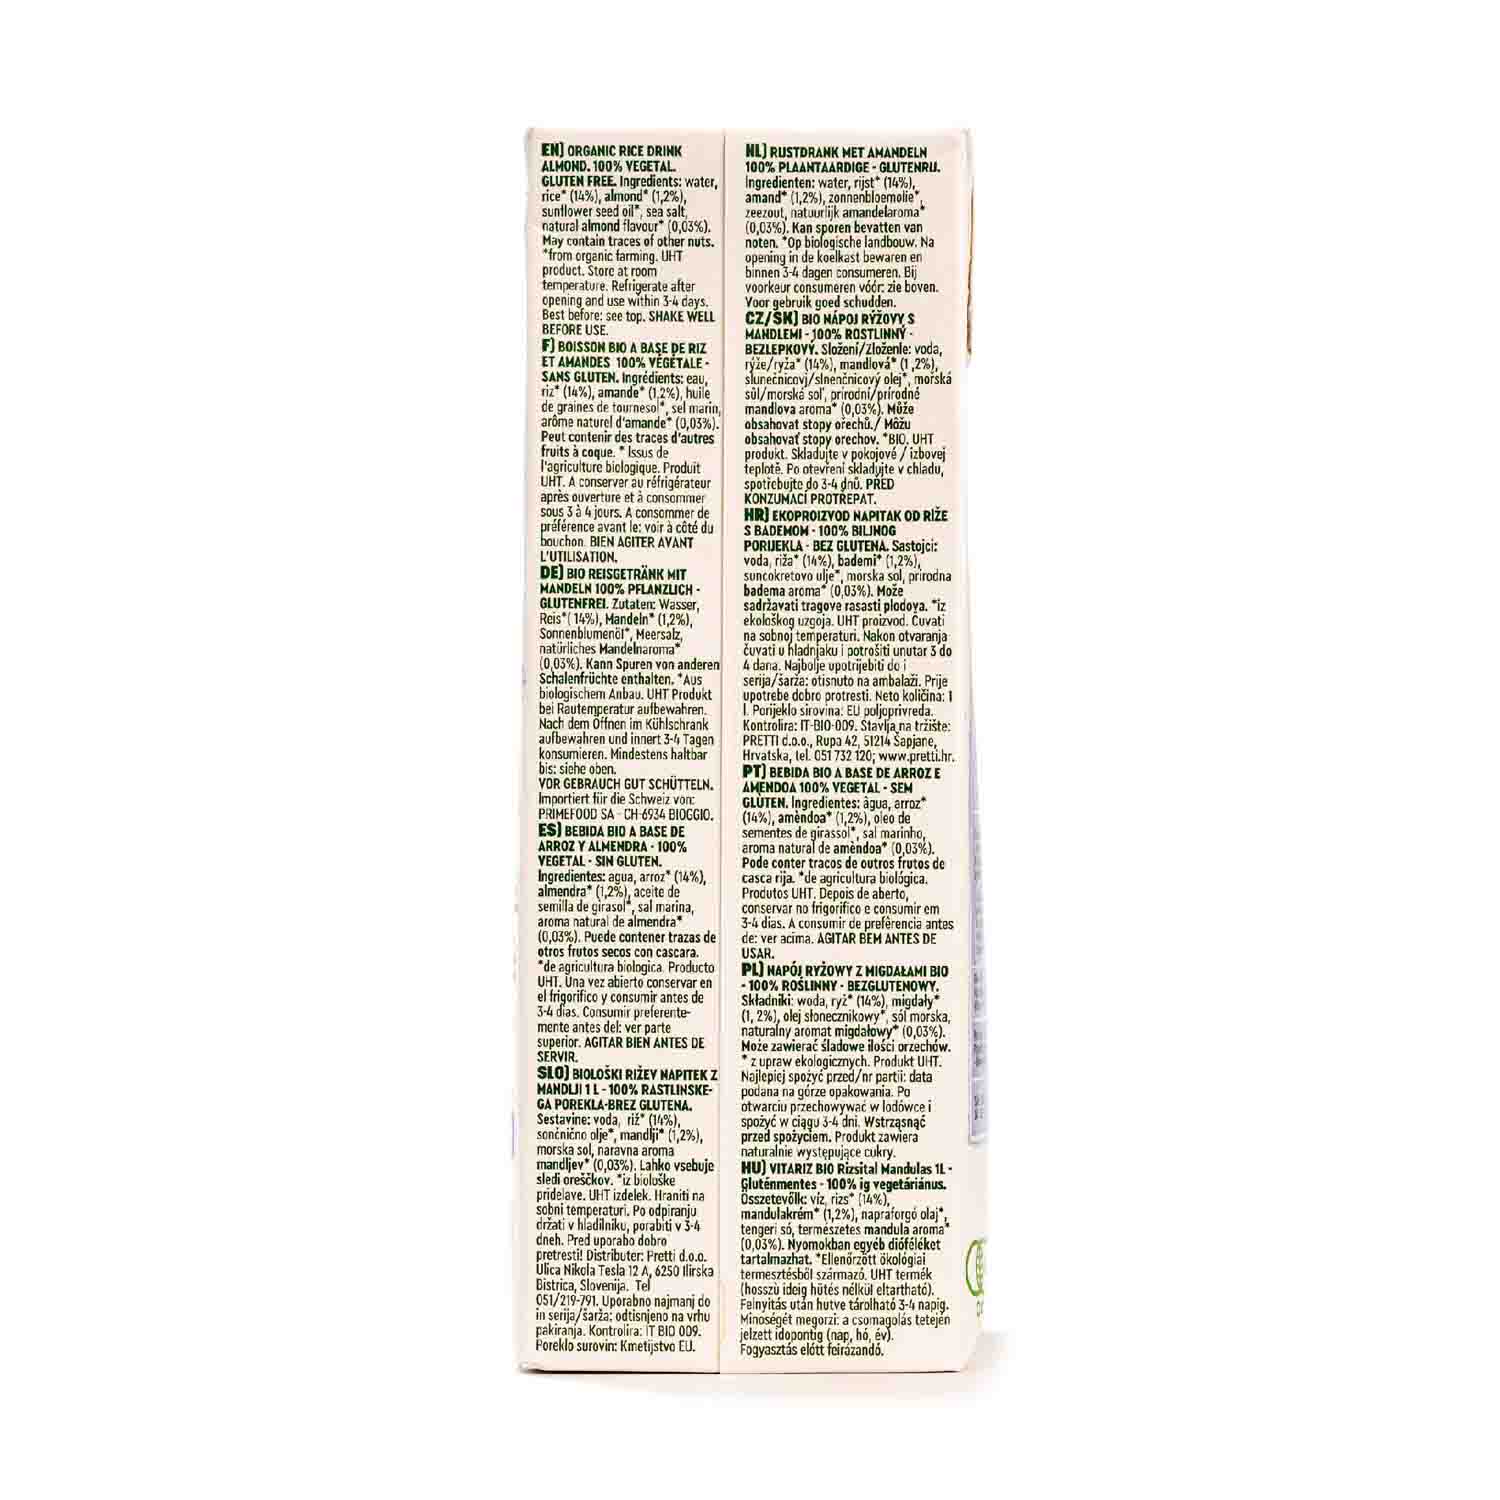 EN) ORGANIC RICE DRINK
ALMOND. 100% VEGETAL.
GLUTEN FREE. Ingredients: water,
rice* (14%), almond* (1,2%),
sunflower seed oil*, sea salt,
natural almond flavour* (0,03%).
May contain traces of other nuts.
*from organic farming. UHT
product. Store at room
temperature. Refrigerate after
opening and use within 3-4 days.
Best before: see top. SHAKE WELL
BEFORE USE.
F) BOISSON BIO A BASE DE RIZ
ET AMANDES 100% VÉGÉTALE -
SANS GLUTEN. Ingrédients: eau,
riz* (14%), amande* (1,2%), huile
de graines de tournesol*, sel marin,
arôme naturel d'amande* (0,03%).
Peut contenir des traces d'autres
fruits à coque. * Issus de
l'agriculture biologique. Produit
UHT. A conserver au réfrigérateur
après ouverture et à consommer
sous 3 à 4 jours. A consommer de
préférence avant le: voir à côté du
bouchon. BIEN AGITER AVANT
L'UTILISATION.
DE) BIO REISGETRÄNK MIT
MANDELN 100% PFLANZLICH -
GLUTENFREI. Zutaten: Wasser,
Reis*( 14%), Mandeln* (1,2%),
Sonnenblumenöl*, Meersalz,
natürliches Mandelnaroma*
(0,03%). Kann Spuren von anderen
Schalenfrüchte enthalten. *Aus
biologischem Anbau. UHT Produkt
bei Rautemperatur aufbewahren.
Nach dem Öffnen im Kühlschrank
aufbewahren und innert 3-4 Tagen
konsumieren. Mindestens haltbar
bis: siehe oben.
VOR GEBRAUCH GUT SCHÜTTELN.
Importiert für die Schweiz von:
PRIMEFOOD SA - CH-6934 BIOGGIO.
ES) BEBIDA BIO A BASE DE
ARROZ Y ALMENDRA - 100%
VEGETAL - SIN GLUTEN.
Ingredientes: agua, arroz* (14%),
almendra* (1,2%), aceite de
semilla de girasol*, sal marina,
aroma natural de almendra*
(0,03%). Puede contener trazas de
otros frutos secos con cascara.
*de agricultura biologica. Producto
UHT. Una vez abierto conservar en
el frigorifico y consumir antes de
3-4 días. Consumir preferente-
mente antes del: ver parte
superior. AGITAR BIEN ANTES DE
SERVIR.
SLO) BIOLOŠKI RIŽEV NAPITEK Z
MANDLJI 1 L - 100% RASTLINSKE-
GA POREKLA-BREZ GLUTENA.
Sestavine: voda, riž* (14%),
sončnično olje*, mandlji* (1,2%),
morska sol, naravna aroma
mandljev* (0,03%). Lahko vsebuje
sledi oreščkov. *iz biološke
pridelave. UHT izdelek. Hraniti na
sobni temperaturi. Po odpiranju
držati v hladilniku, porabiti v 3-4
dneh. Pred uporabo dobro
pretresti! Distributer: Pretti d.o.o.
Ulica Nikola Tesla 12 A, 6250 Ilirska
Bistrica, Slovenija. Tel
051/219-791. Uporabno najmanj do
in serija/šarža: odtisnjeno na vrhu
pakiranja. Kontrolira: IT BIO 009.
Poreklo surovin: Kmetijstvo EU.
NL) RIJSTDRANK MET AMANDELN
100% PLAANTAARDIGE - GLUTENRIJ.
Ingredienten: water, rijst* (14%),
amand* (1,2%), zonnenbloemolie*,
zeezout, natuurlijk amandelaroma*
(0,03%). Kan sporen bevatten van
noten. *Op biologische landbouw. Na
opening in de koelkast bewaren en
binnen 3-4 dagen consumeren. Bij
voorkeur consumeren vóór: zie boven.
Voor gebruik goed schudden.
CZ/SK) BIO NÁPOJ RÝŽOVÝ S
MANDLEMI - 100% ROSTLINNÝ -
BEZLEPKOVÝ. Složení/Zloženie: voda,
rýže/ryža* (14%), mandlová* (1 ,2%),
slunečnicovj/slnenčnicový olej*, mořská
sůl/morská soľ, prirodní/prírodné
mandlova aroma* (0,03%). Může
obsahovat stopy ořechů./ Môžu
obsahovať stopy orechov. *BIO. UHT
produkt. Skladujte v pokojové / izbovej
teplotě. Po otevření skladujte v chladu,
spotřebujte do 3-4 dnů. PŘED
KONZUMACÍ PROTŘEPAT.
HR) EKOPROIZVOD NAPITAK OD RIŽE
S BADEMOM - 100% BILJNOG
PORIJEKLA - BEZ GLUTENA. Sastojci:
voda, riža* (14%), bademi* (1,2%),
suncokretovo ulje*, morska sol, prirodna
badema aroma* (0,03%). Može
sadržavati tragove rasasti plodova. *iz
ekološkog uzgoja. UHT proizvod. Čuvati
na sobnoj temperaturi. Nakon otvaranja
čuvati u hladnjaku i potrošiti unutar 3 do
4 dana. Najbolje upotrijebiti do i
serija/šarža: otisnuto na ambalaži. Prije
upotrebe dobro protresti. Neto količina: 1
l. Porijeklo sirovina: EU poljoprivreda.
Kontrolira: IT-BIO-009. Stavlja na tržište:
PRETTI d.o.o., Rupa 42, 51214 Šapjane,
Hrvatska, tel. 051 732 120; www.pretti.hr.
PT) BEBIDA BIO A BASE DE ARROZ E
AMENDOA 100% VEGETAL - SEM
GLÚTEN. Ingredientes: àgua, arroz*
(14%), amèndoa* (1,2%), oleo de
sementes de girassol*, sal marinho,
aroma natural de amèndoa* (0,03%).
Pode conter tracos de outros frutos de
casca rija. *de agricultura biológica.
Produtos UHT. Depois de aberto,
conservar no frigorifico e consumir em
3-4 dias. A consumir de prefêrencia antes
de: ver acima. AGITAR BEM ANTES DE
USAR.
PL) NAPÓJ RYŻOWY Z MIGDAŁAMI BIO
- 100% ROŚLINNY - BEZGLUTENOWY.
Składniki: woda, ryż* (14%), migdały*
(1, 2%), olej słonecznikowy*, sól morska,
naturalny aromat migdałowy* (0,03%).
Może zawierać śladowe ilości orzechów.
* z upraw ekologicznych. Produkt UHT.
Najlepiej spożyć przed/nr partii: data
podana na górze opakowania. Po
otwarciu przechowywać w lodówce i
spożyć w ciągu 3-4 dni. Wstrząsnąć
przed spożyciem. Produkt zawiera
naturalnie występujące cukry.
HU) VITARIZ BIO Rizsital Mandulas 1L -
Gluténmentes - 100% ig vegetáriánus.
Összetevőlk: víz, rizs* (14%),
mandulakrém* (1,2%), napraforgó olaj*,
tengeri só, természetes mandula aroma*
(0,03%). Nyomokban egyéb dióféléket
tartalmazhat. *Ellenőrzött ökológiai
termesztésből származó. UHT termék
(hosszù ideig hűtés nélkül eltartható).
Felnyitás után hutve tárolható 3-4 napig.
Minoségét megorzi: a csomagolás tetején
jelzett idopontig (nap, hó, év).
Fogyasztás előtt feirázandó.